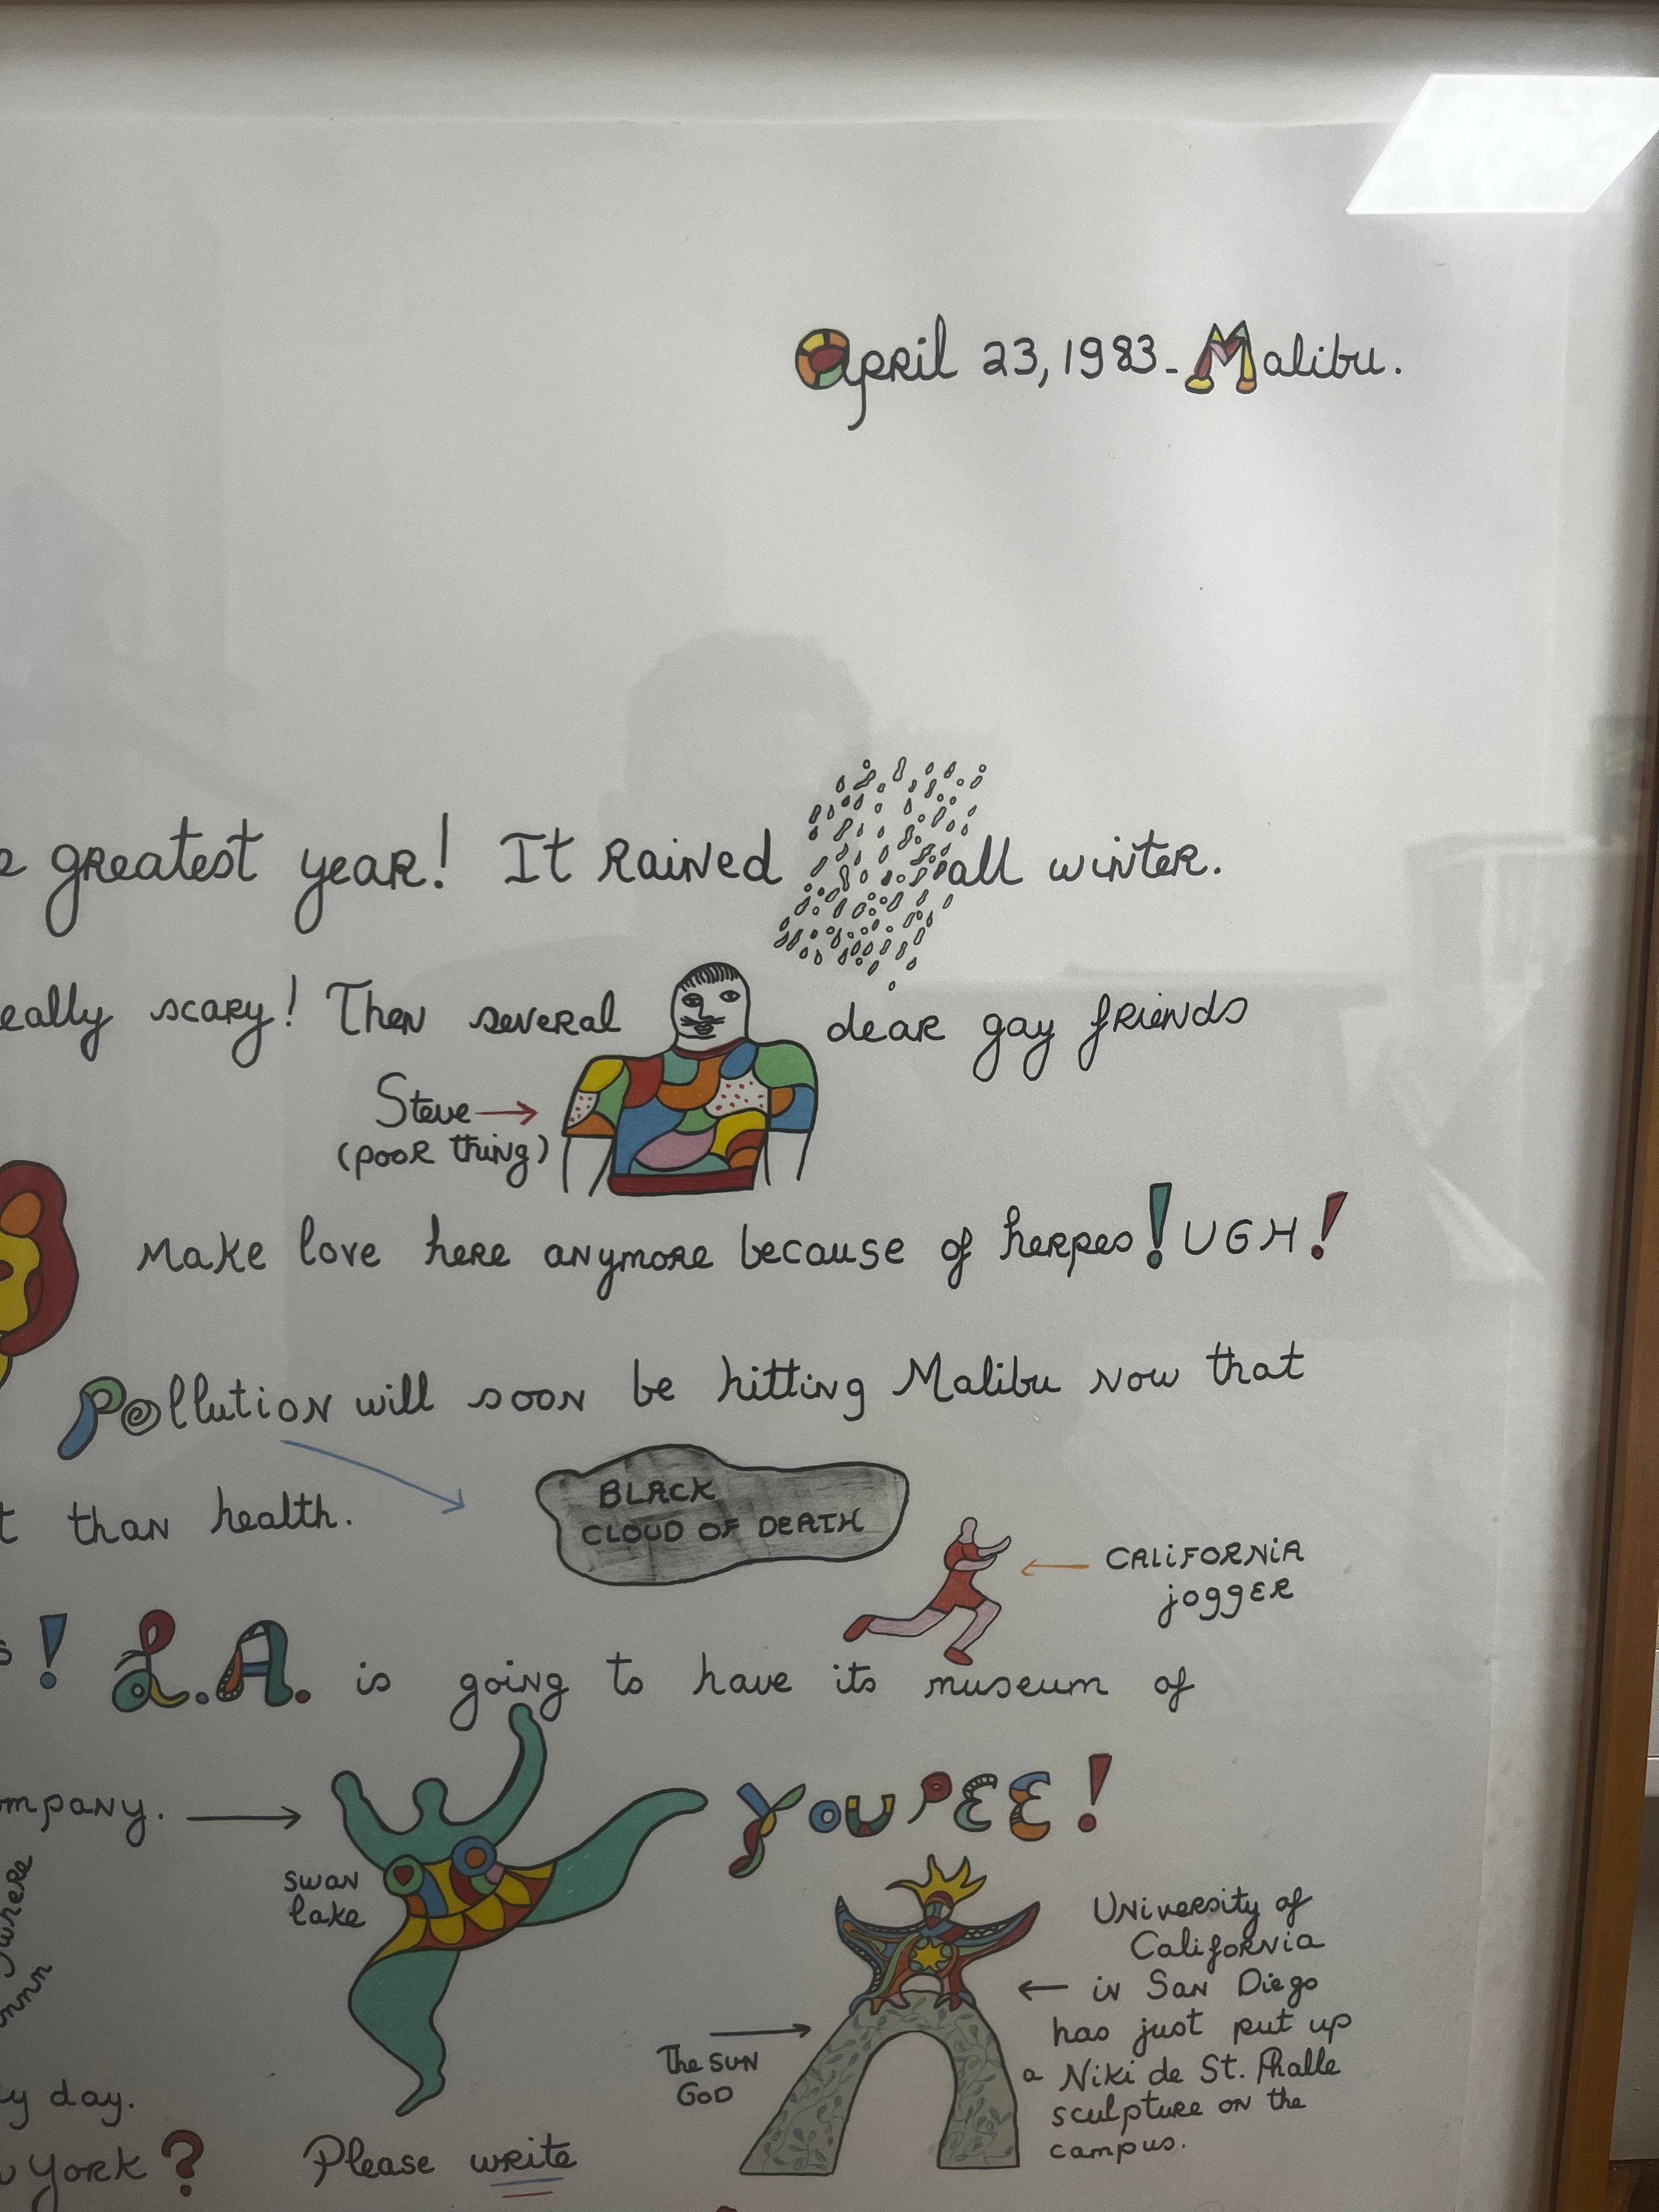 April 23, 1983 - Malibu.
greatest year! It Rained all winter.
eally scary! Then several dear gay friends
Steve
(poor thing)
make love here anymore because of herpes! UGH!
Pollution will soon be hitting Malibu now that
t than health.
BLACK
CLOUD OF DEATH
CALiFORNiA
jogger
s! L.A. is going to have its museum of
mpany.
YOUPEE!
swan
lake
where
University of
California
in San Diego
has just put up
a Niki de St. Phalle
sculpture on the
campus.
The SUN
GOD
y day.
York? Please write